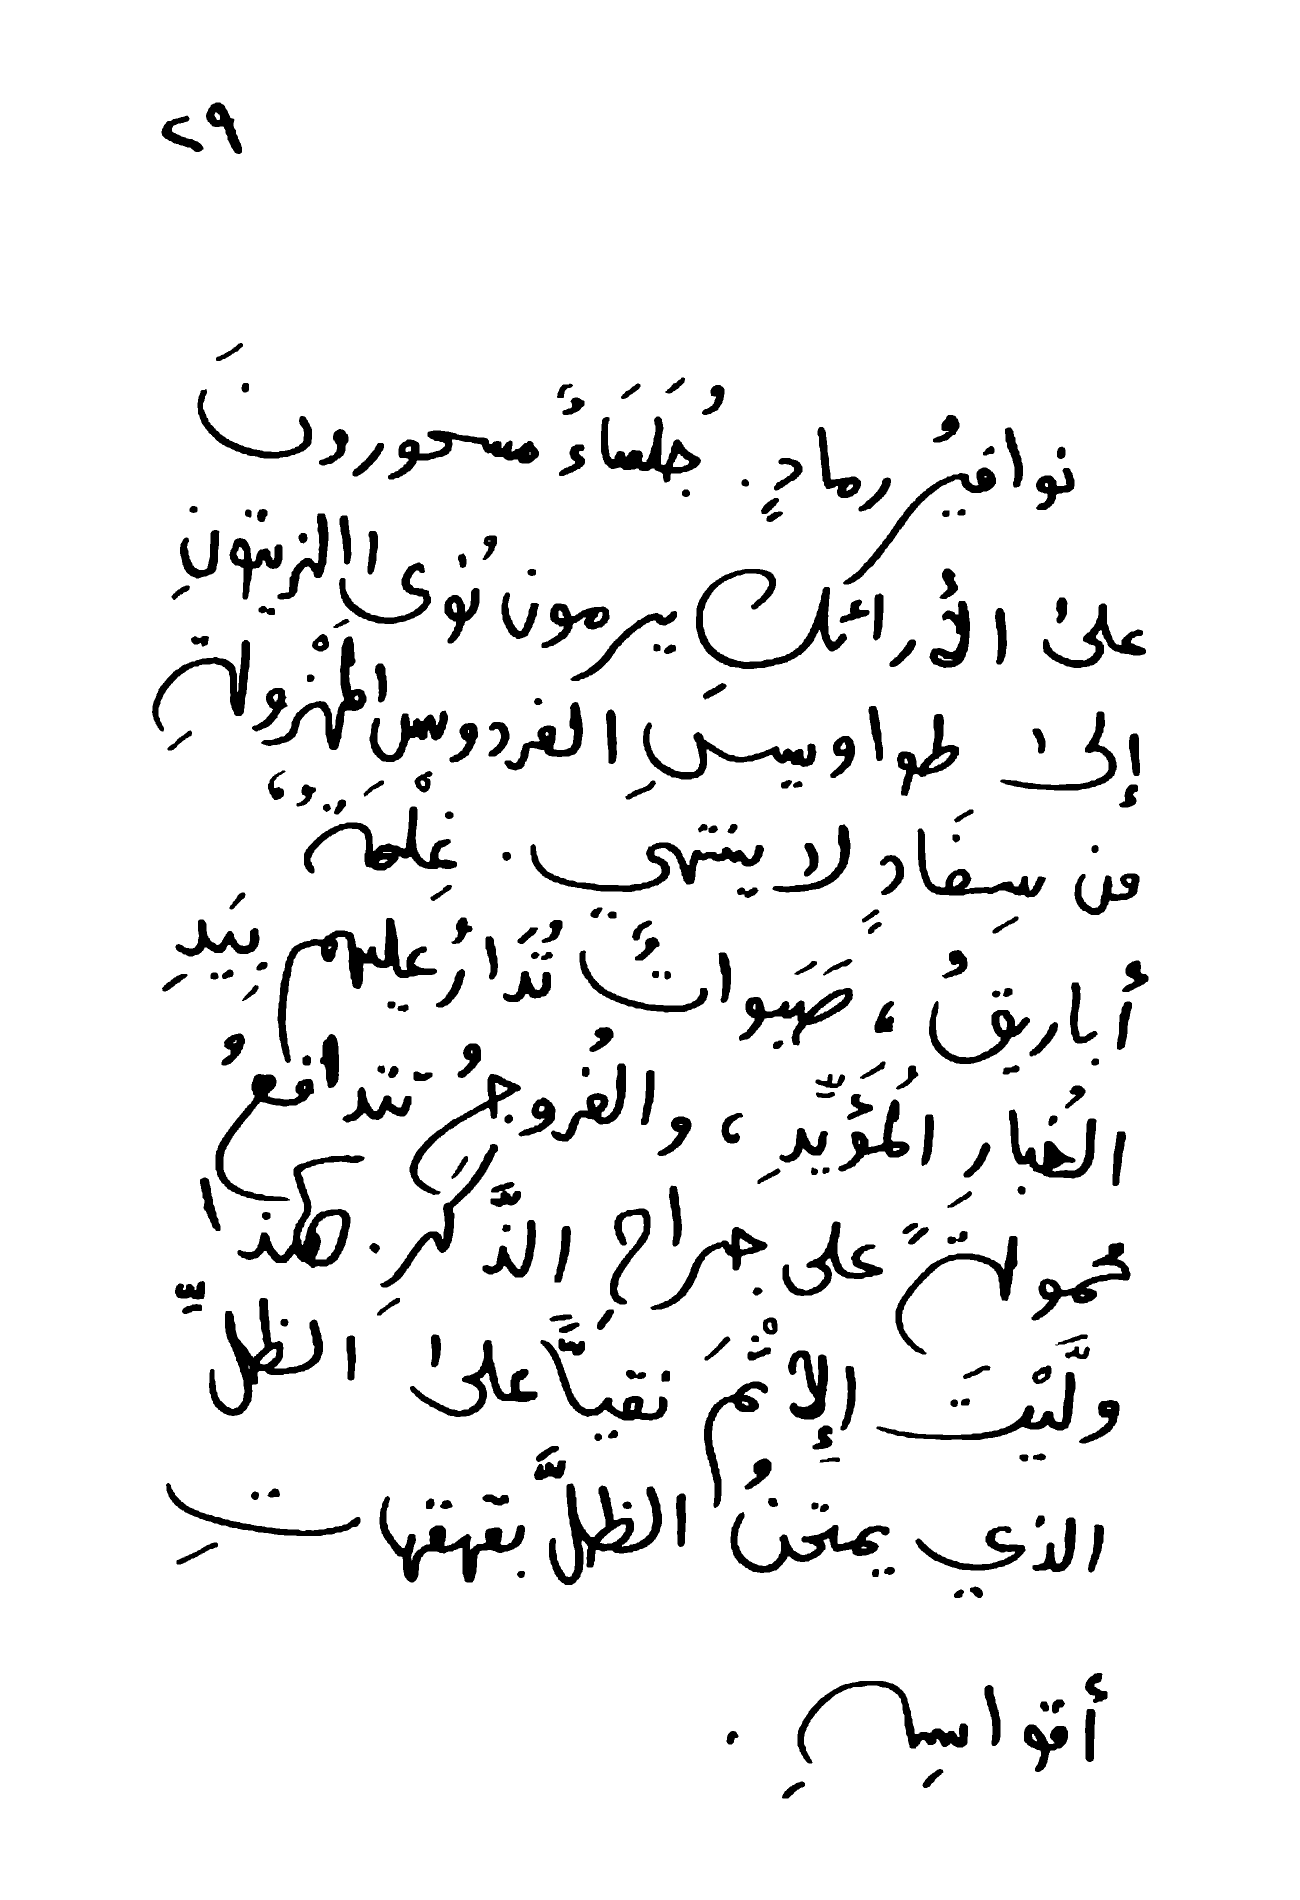 ٢٩
نوافيرُ رمادٍ. جُلَسَاءُ مسحورونَ
على الأرائك يرمون نُوى الزيتونِ
إلى طواويسِ الفردوس المهْزولةِ
من سِفَادٍ لا ينتهي. غِلْمَةٌ،
أباريقُ، صَبَواتٌ تُدَارُ عليهم بِيَدِ
الغُبارِ المُؤَيِّدِ، والفُروجُ تتدافعُ
محمولةً على جراحِ الذَّكَرِ. هكذا
ولَّيْتَ الإِثْمَ نقيّاً على الظلِّ
الذي يمتحنُ الظلَّ بقهقهاتِ
أقواسِهِ.